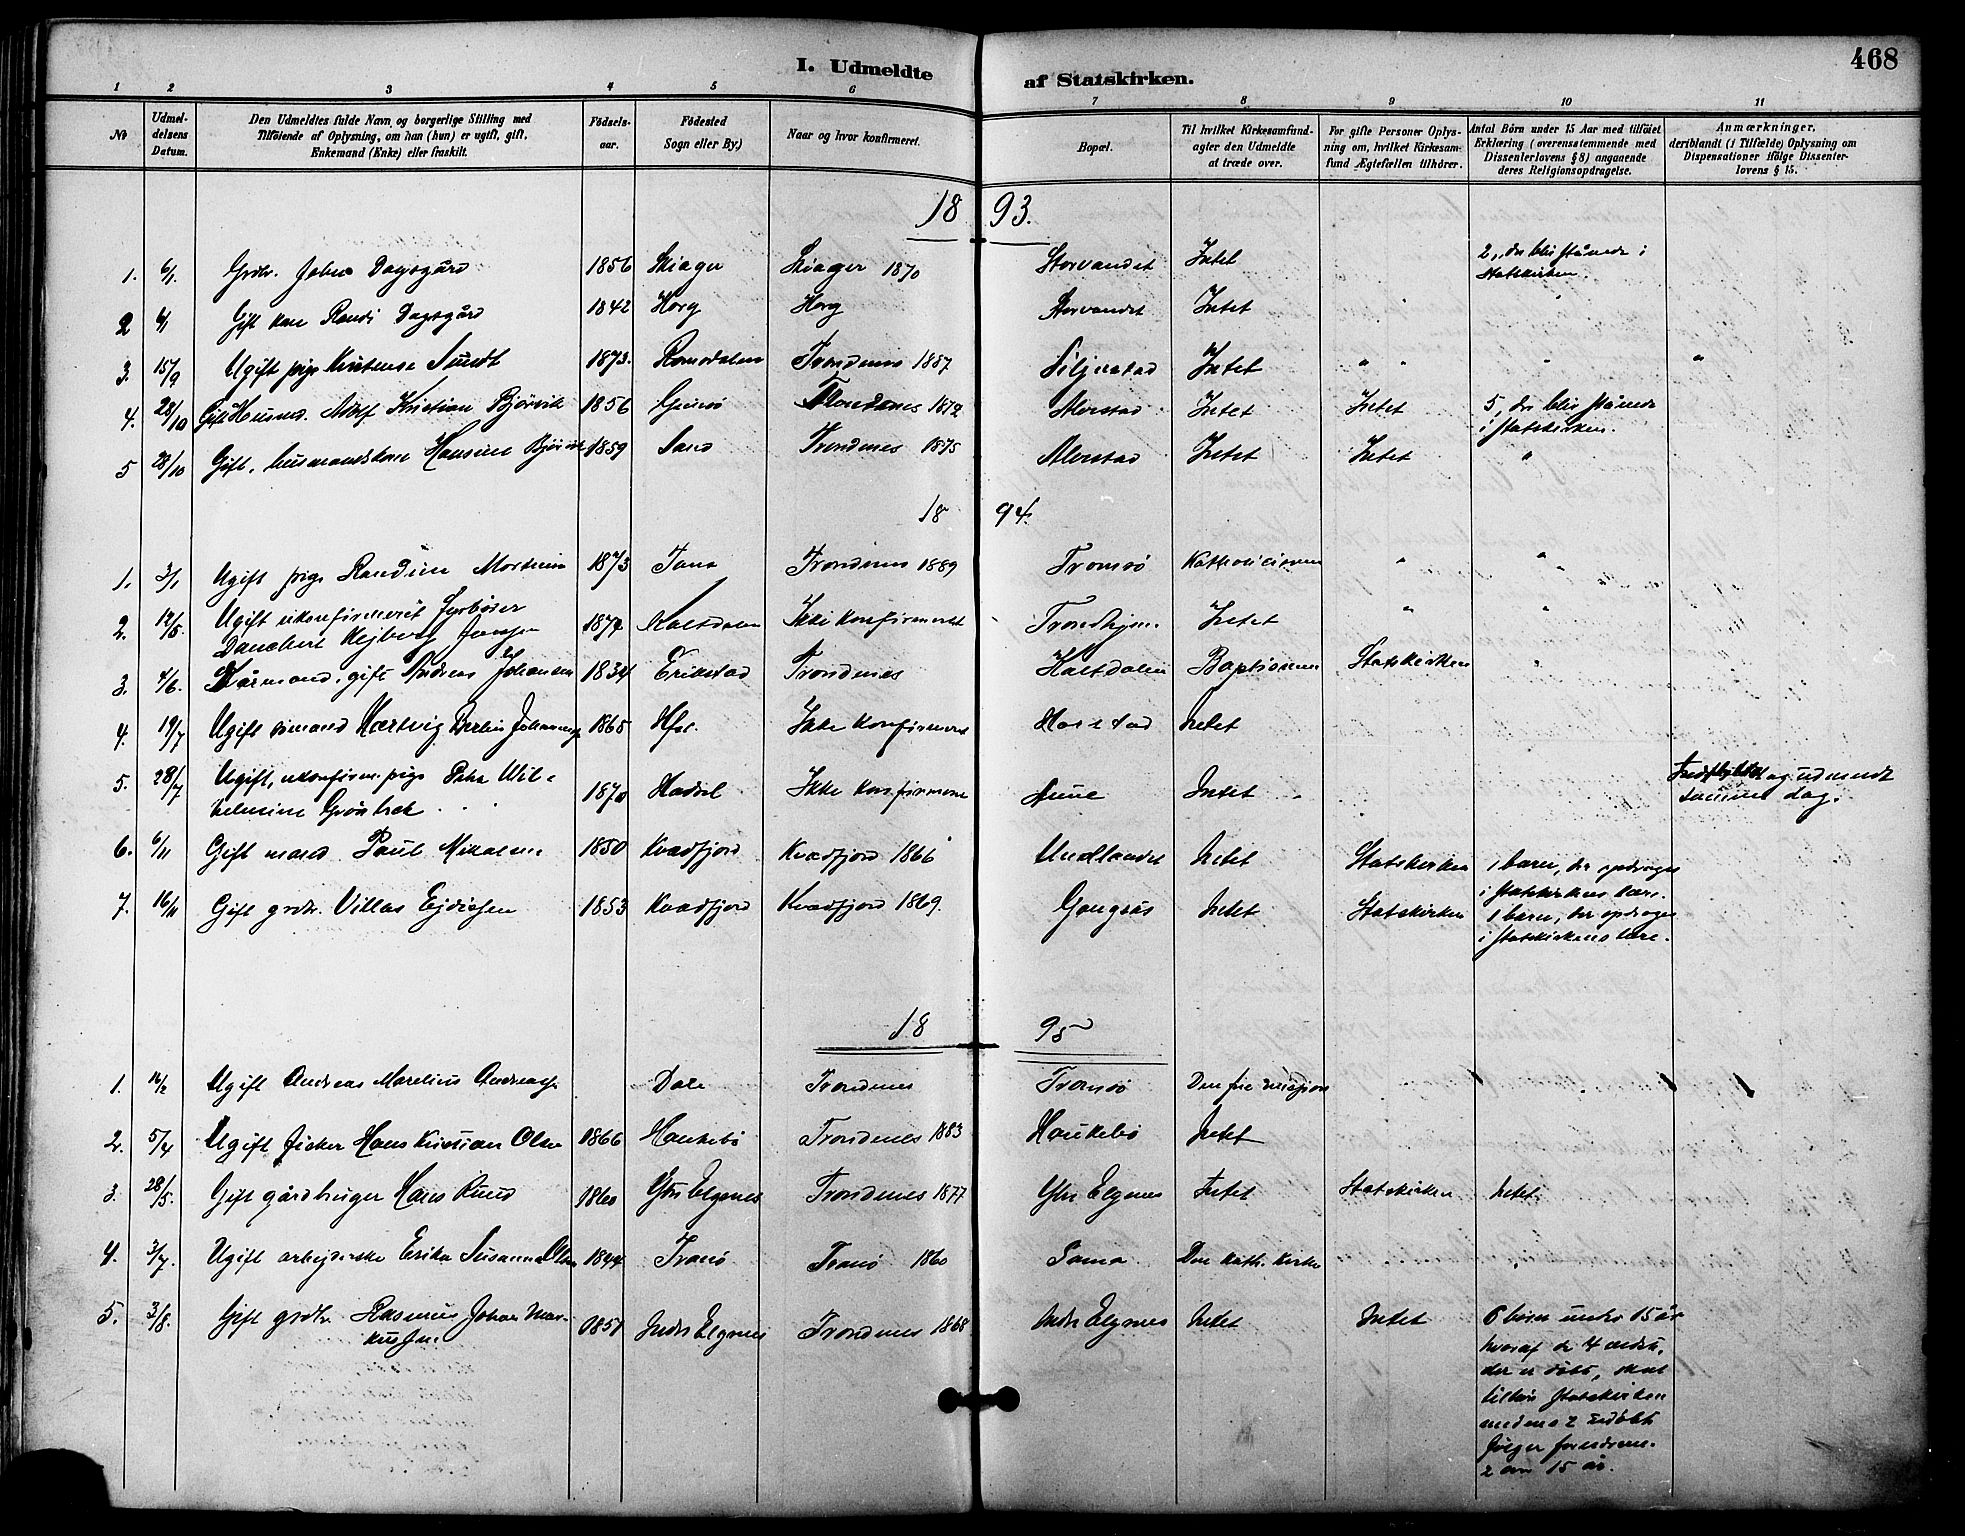 468
I. Udmeldte af Statskirken.
1 2 3 4 5 6 7 8 9 10 11
No
Udmel-
delsens
Datum.
Den Udmeldtes fulde Navn og borgerlige Stilling med
Tilføiende af Oplysning, om han (hun) er ugift, gift,
Enkemand (Enke) eller fraskilt.
Fødsels-
aar.
Fødested
Sogn eller By,)
Naar og hvor konfirmeret.
Bopæl.
Til hvilket Kirkesamfund-
agter den Udmeldte
at træde over.
For gifte Personer Oplys-
ning om, hvilket Kirkesam-
fund Ægtefællen tilhører.
Antal Børn under 15 Aar med tilføiet
Erklæring (overensstemmende med
Dissenterlovens § 8) angaaende
deres Religionsopdragelse.
Anmærkninger,
deriblandt (i Tilfælde) Oplysning om
Dispensationer ifølge Dissenter-
lovens § 15.
18 93.
1. 6/1. Grdbr. Johan Dagsgård 1856 Skiager Skiager 1870 Storvandet Intet 2, der bli stående i
statskirken.
2 6/1 Gift kone Randi Dagsgård 1842 Horg Horg Storvandet Intet
3. 15/9 Ugift pige Kristense Sundt 1873. Romsdalen Trondenes 1887 Siljestad Intet " " " "
4. 28/10 Gift Husmd. Adolf Kristian Bjørvik 1856 Grimsö Trondenes 1872 Alvestad Intet Intet 5, der bliv stående
i statskirken.
5 28/10 Gift, husmandskone Hansine Bjørvik 1859 Sand Trondenes 1875 Alvestad Intet Intet "
18 94.
1. 3/1 Ugift pige Randine Mortensen 1873 Tana Trondenes 1889 Tromsö Katholicismen " "
2. 12/5. Ugift ukonfirmeret
Danebert Kejberg Jensen 1874 Kaltdalen Ikke konfirmeret Trondhjem. Intet " "
3. 4/6. Kårmand, gift Andreas Johansen 1834 Erikstad Trondenes Kaltdalen Baptismen Statskirken "
4. 19/7 Ugift sömand Hartvig Berlin Johannesen 1865 Ikke konfirmeret Harstad Intet
5. 28/7 Ugift, ukonfirm. pige Petra Wil-
helmine Grönbek 1870 Hadsel Ikke konfirmeret Aune Intet " Indflyttet og udmeldt
samme dag.
6. 6/11 Gift mand Paul Mikalsen 1850 Kvædfjord Kvædfjord 1866 Undlandet Intet Statskirken 1 barn, der opdrages
i statskirkens lære.
7. 16/11 Gift grdbr. Villas Ejdisen 1853 Kvædfjord Kvædfjord 1869. Gangsås Intet Statskirken 1 barn, der opdrages
i statskirkens lære.
18 95
1. 14/2 Ugift Andreas Marelius Andreassen Dale Trondenes Tromsö Den frie mission
2. 5/4 Ugift fisker Hans Kristian Olsen 1866 Haukebö Trondenes 1883 Haukebö Intet
3. 28/5. Gift gårdbruger Hans Rund 1860 Ytre Elgsnes Trondenes 1877 Ytre Elgsnes Intet Statskirken Intet.
4. 3/7. Ugift arbejderske Erika Susanna Olsen 1844 Tranö Tranö 1860 Sama Den kath. kirke "
5. 3/8. Gift grdbr. Rasmus Johan Mar-
kussen. 1851 Indre Elgsnes Trondenes 1868 Indre Elgsnes Intet Intet 6 börn under 15 år
hvoraf de 4 ældste,
der er döbt, skal
tilhöre statskirken
medens 2 udöbte
fölger forældrene.
2 over 15 år.